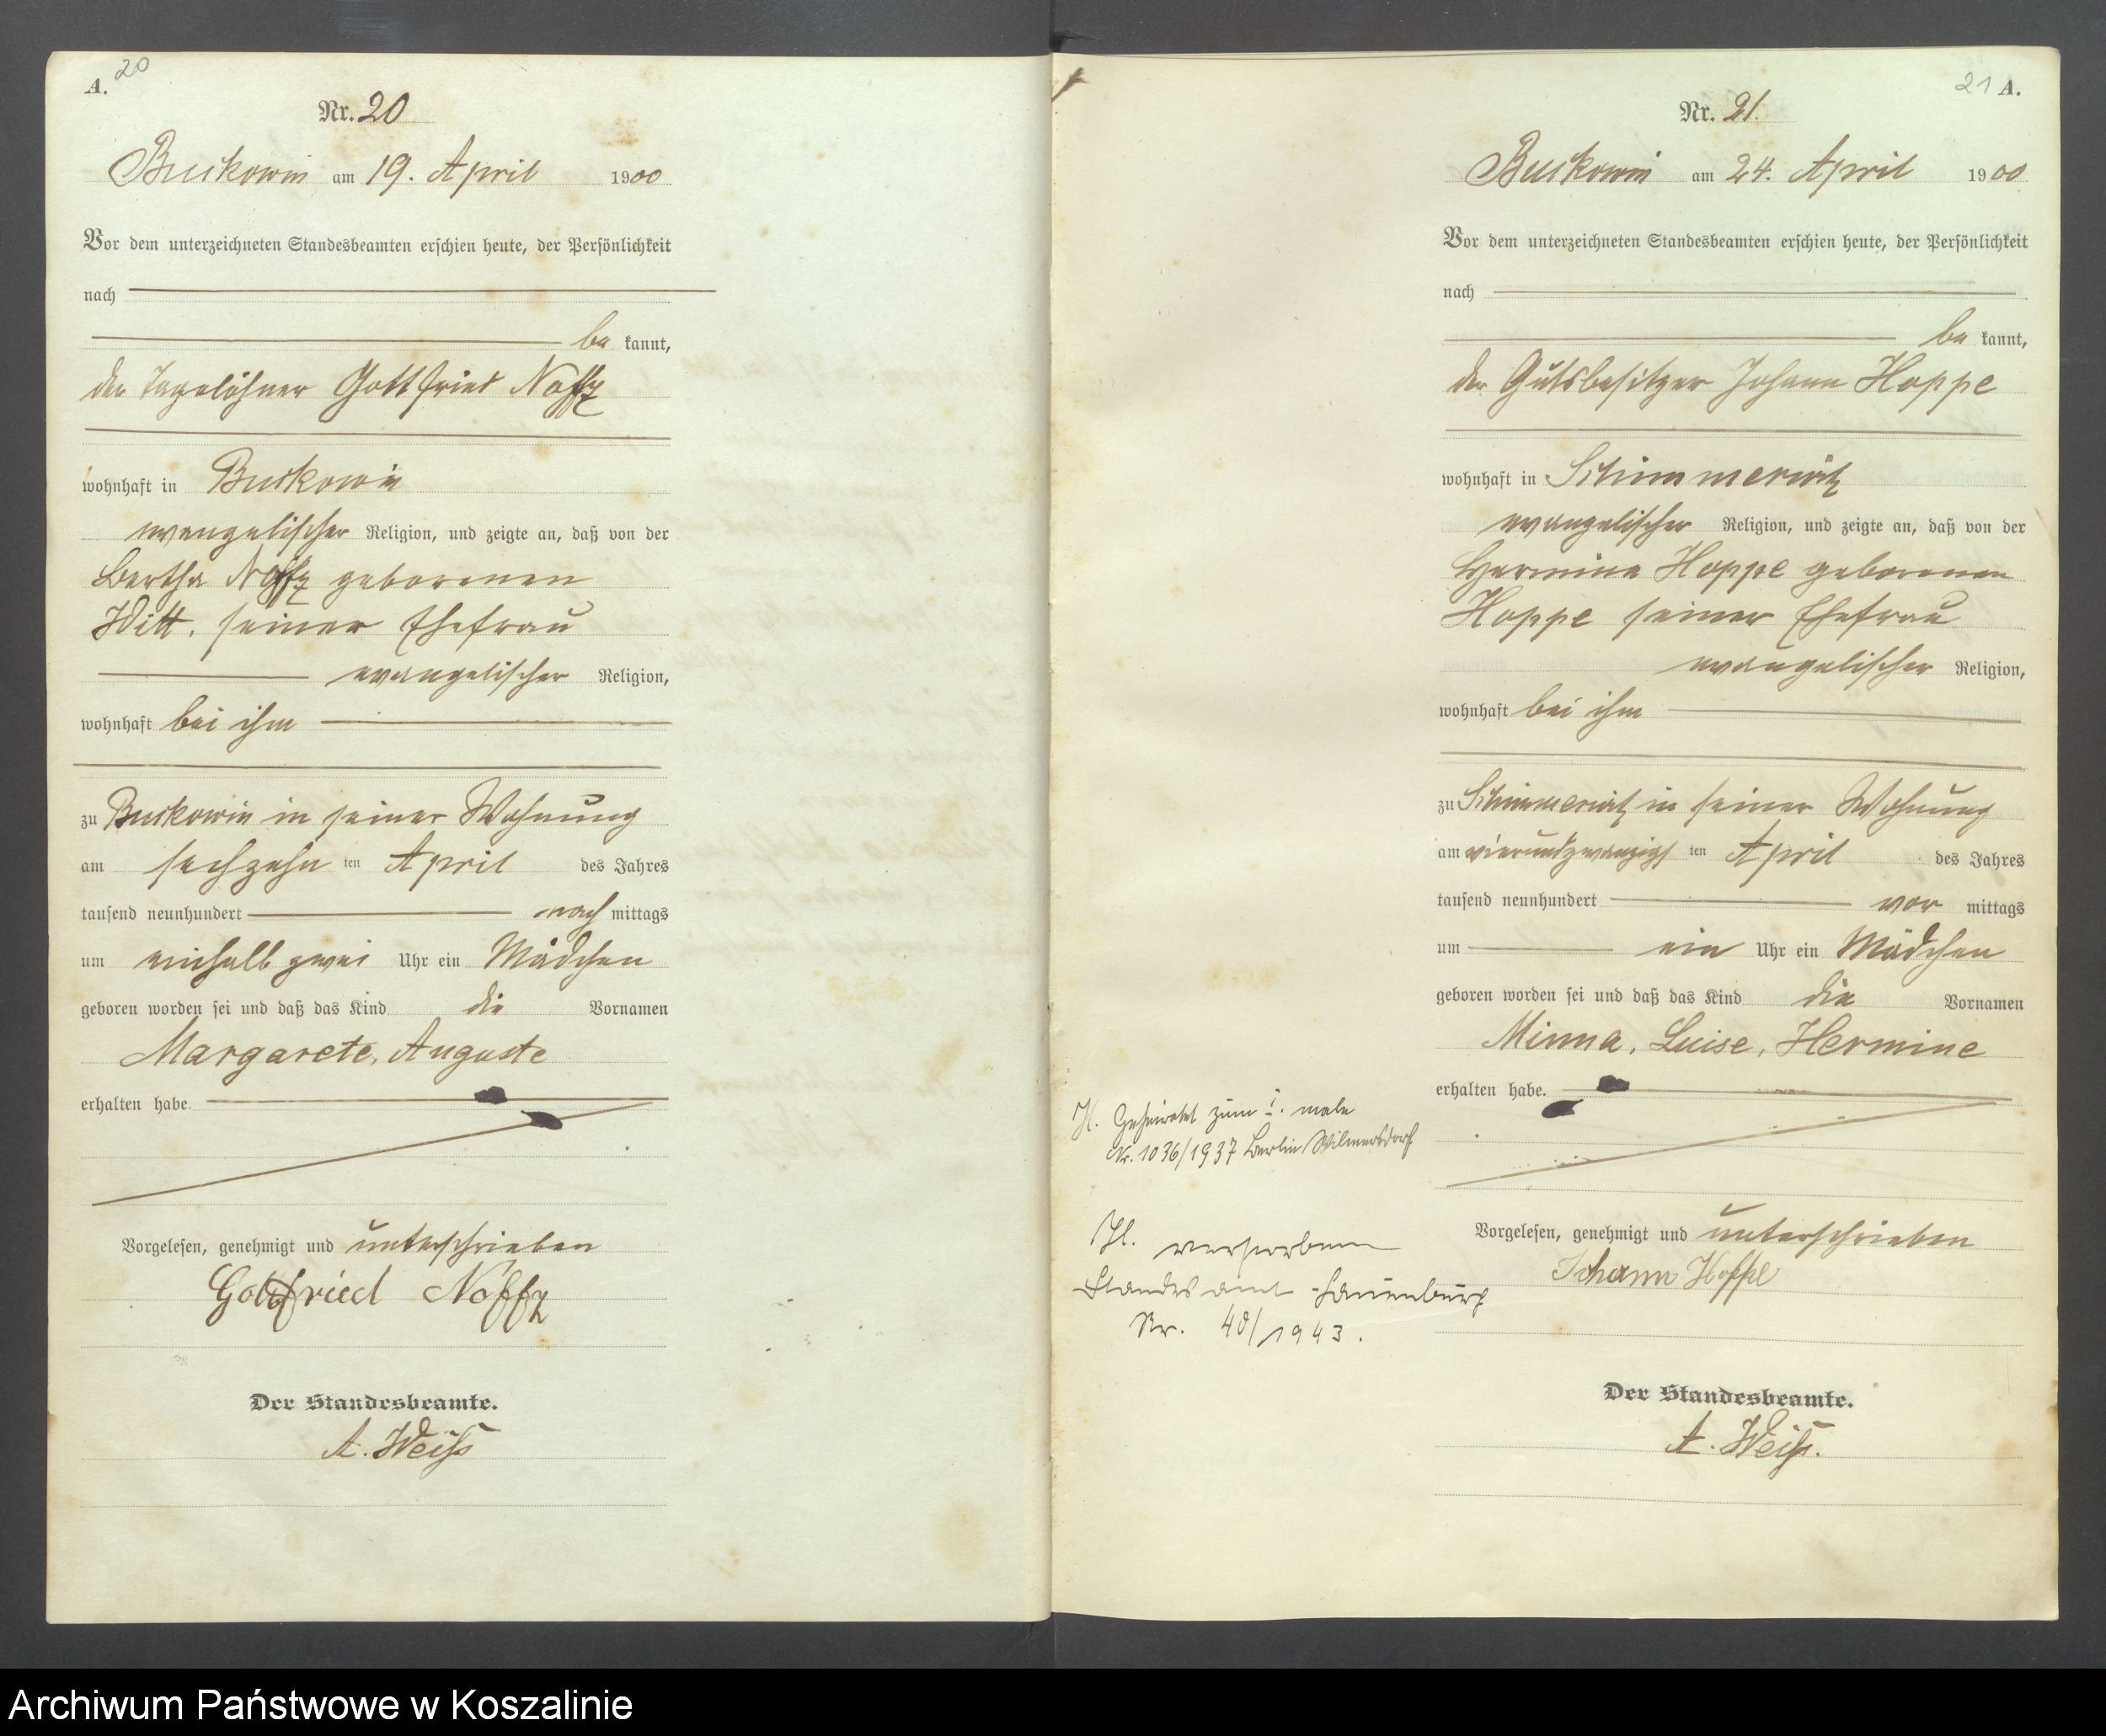 20
A.
Nr. 20
Buckowin am 19. April 1900
Vor dem unterzeichneten Standesbeamten erschien heute, der Persönlichkeit
nach
be kannt,
der Tagelöhner Gottfried Noffz
wohnhaft in Buckowin
evangelischer Religion, und zeigte an, daß von der
Bertha Noffz geborenen
Witt, seiner Ehefrau
evangelischer Religion,
wohnhaft bei ihm
zu Buckowin in seiner Wohnung
am sechzehn ten April des Jahres
tausend neunhundert nach mittags
um einhalb zwei Uhr ein Mädchen
geboren worden sei und daß das Kind die Vornamen
Margarete, Auguste
erhalten habe.
Vorgelesen, genehmigt und unterschrieben
Gottfried Noffz
Der Standesbeamte.
A. Weiß
21 A.
Nr. 21.
Buckowin am 24. April 1900
Vor dem unterzeichneten Standesbeamten erschien heute, der Persönlichkeit
nach
be kannt,
der Gutsbesitzer Johann Hoppe
wohnhaft in Schimmerwitz
evangelischer Religion, und zeigte an, daß von der
Hermine Hoppe geborenen
Hoppe seiner Ehefrau
evangelischer Religion,
wohnhaft bei ihm
zu Schimmerwitz in seiner Wohnung
am vierundzwanzigs ten April des Jahres
tausend neunhundert vor mittags
um ein Uhr ein Mädchen
geboren worden sei und daß das Kind die Vornamen
Minna, Luise, Hermine
erhalten habe.
Vorgelesen, genehmigt und unterschrieben
Johann Hoppe
Der Standesbeamte.
A. Weiß.
Geheiratet zum 1. male
Nr. 1036/1937 Berlin Wilmersdorf
verstorben
Standesamt Lauenburg
Nr. 40/1943.
Archiwum Państwowe w Koszalinie